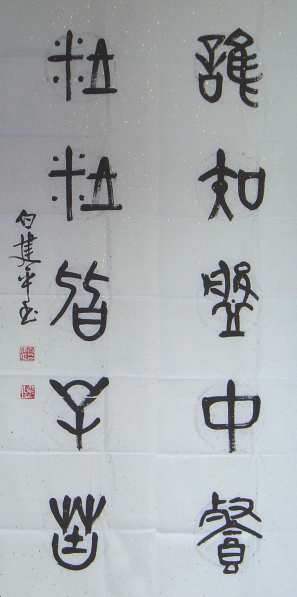 誰知盤中餐
粒粒皆辛苦
白建平